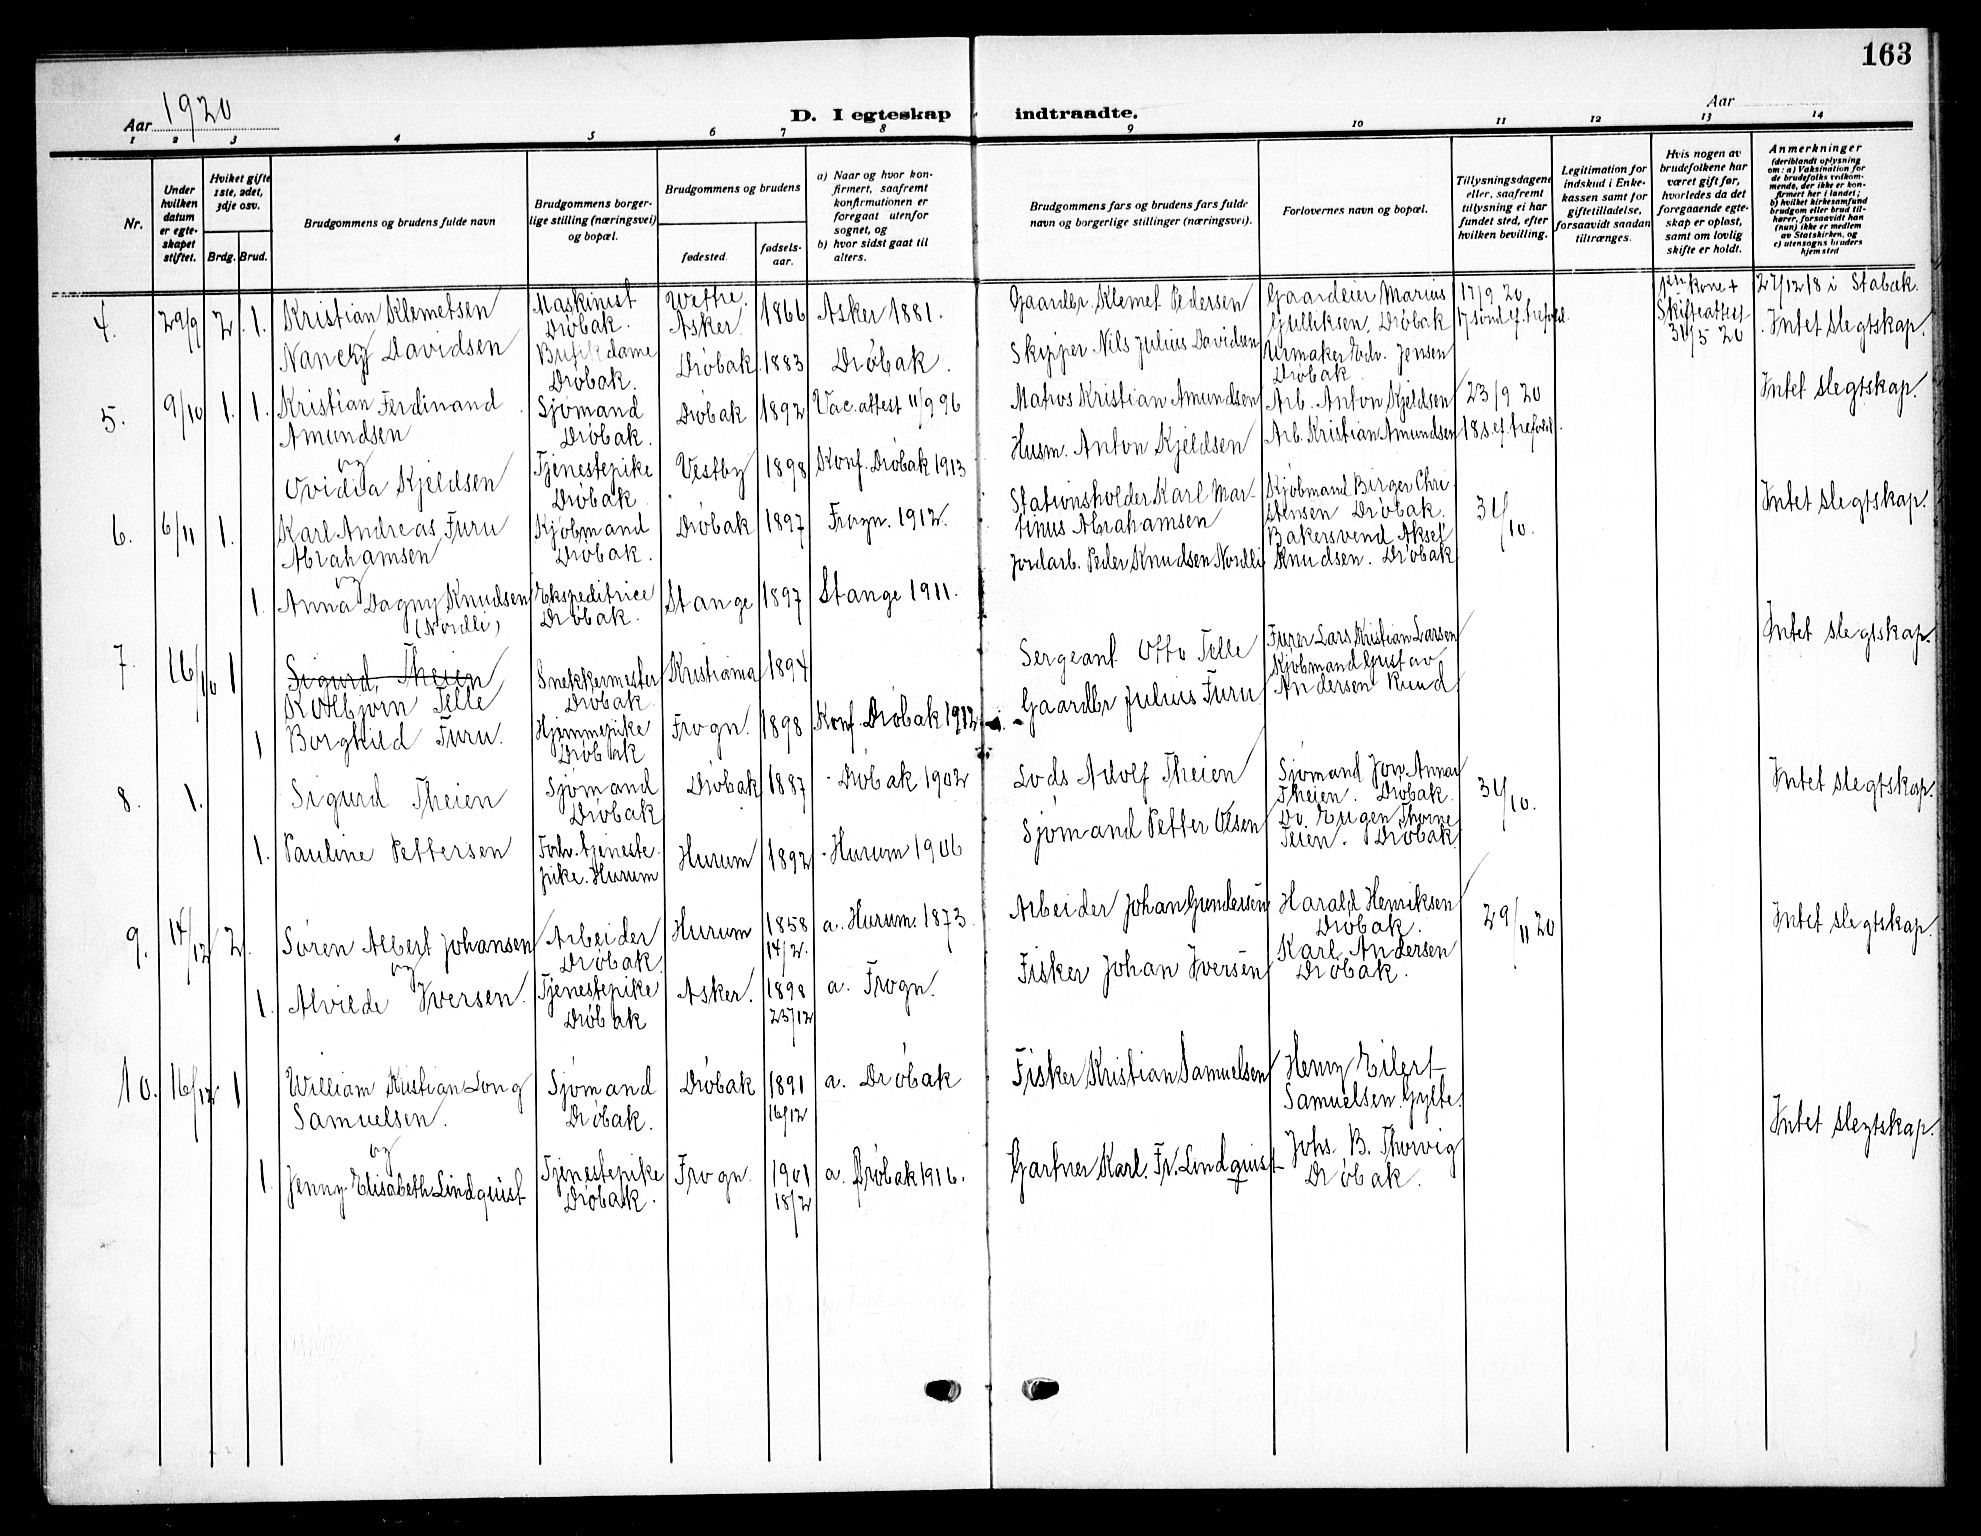 163
Aar 1920
D. I egteskap indtraadte.
Aar
1 2 3 4 5 6 7 8 9 10 11 12 13 14
Nr.
Under hvilken datum er egte-skapet stiftet.
Hviket gifte 1ste, 2det, 3dje osv.
Brdg. Brud.
Brudgommens og brudens fulde navn
Brudgommens borger-lige stilling (næringsvei) og bopæl.
Brudgommens og brudens
fødested.
fødsels-aar.
a) Naar og hvor kon-firmert, saafremt konfirmationen er foregaat utenfor sognet, og
b) hvor sidst gaat til alters.
Brudgommens fars og brudens fars fulde navn og borgerlige stillinger (næringsvei).
Forlovernes navn og bopæl.
Tillysningsdagene eller, saafremt tillysning ei har fundet sted, efter hvilken bevilling.
Legitimation for indskud i Enke-kassen samt for giftetilladelse, forsaavidt saadan tiltrænges.
Hvis nogen av brudefolkene har været gift før, hvorledes da det foregaaende egte-skap er opløst, samt om lovlig skifte er holdt.
Anmerkninger
(deriblandt oplysning om: a) Vaksination for de brudefolks vedkom-mende, der ikke er kon-firmert her i landet; b) hvilket kirkesamfund brudgom eller brud til-hører, forsaavidt han (hun) ikke er medlem av Statskirken, og c) utensogns bruders hjemsted
4. 29/9 2. 1. Kristian Klemetsen
Maskinist Drøbak.
Asker.
1866
Asker 1881.
Gaardbr. Klemet Pedersen
Gaardeier Marius Gulliksen, Drøbak
17/9 20
17 sønd. ef. trefold.
kone +
Skifteattest 31/5 20
27/12 18 i Stabæk.
Intet slegtskap.
Nancy Davidsen
Drøbak.
Drøbak
1883
Drøbak.
Skipper Nils Julius Davidsen
Urmaker Edv. Jensen Drøbak
5. 9/10 1. 1. Kristian Ferdinand Amundsen
Sjømand Drøbak.
Drøbak
1892
Vac. attest 11/9 96
Matros Kristian Amundsen
Arb. Anton Kjeldsen
23/9 20
18 s. ef. trefold.
Intet slegtskap.
og
Ovidia Kjeldsen
Tjenestepike Drøbak.
Vestby
1898
Konf. Drøbak 1913
Husm. Anton Kjeldsen
Arb. Kristian Amundsen
6. 6/11 1. Karl Andreas Furu Abrahamsen
Kjøbmand Drøbak.
Drøbak
1897
Frogn. 1912.
Stationsholder Karl Mar-tinus Abrahamsen
Kjøbmand Birger Chri-stensen Drøbak.
31/10.
Intet slegtskap.
og
1. Anna Dagny Knudsen (Nordli)
Ekspeditrice Drøbak.
Stange
1897
Stange 1911.
Jordarb. Peder Knudsen Nordli
Bakersvend Aksel Knudsen. Drøbak
7. 16/10 1 Sigurd Theien
Kolbjørn Telle
Snekkermester Drøbak.
Kristiania
1894
Sergeant Otto Telle
Furer Lars Kristian Larsen
Intet slegtskap.
1 Borghild Furu.
Hjemmepike Drøbak
Frogn.
1898
Konf. Drøbak 1912
Gaardbr Julius Furu
Kjøbmand Gustav Andersen
8. 1. Sigurd Theien
Sjømand Drøbak
Drøbak
1887
Drøbak 1902
Lods Adolf Theien
Sjømand Theien. Drøbak.
31/10.
Intet slegtskap.
1. Pauline Pettersen
Forhv. tjeneste-pike. Hurum
Hurum
1892
Hurum 1906
Sjømand Petter Olsen
Do. Eugen Thorne Teien. Drøbak
9. 14/12 2. Søren Albert Johansen
Arbeider Drøbak
Hurum
1858 14/2.
a. Hurum. 1873.
Arbeider Johan Gundersen
Harald Henriksen Drøbak.
29/11 20
Intet slegtskap.
og
1. Alvilde Iversen.
Tjenestepike Drøbak
Asker.
1898 25/12
a. Frogn.
Fisker Johan Iversen
Karl Andersen Drøbak.
10. 16/12 1 William Kristian Long Samuelsen.
Sjømand Drøbak.
Drøbak
1891 16/12
a. Drøbak
Fisker Kristian Samuelsen
Henry Eilert Samuelsen. Gylte.
Intet slegtskap.
og
1. Jenny Elisabeth Lindquist
Tjenestepike Drøbak.
Frogn.
1901 18/2
a. Drøbak 1916.
Gartner Karl. Fr. Lindquist
Johs. B. Thorvig Drøbak.